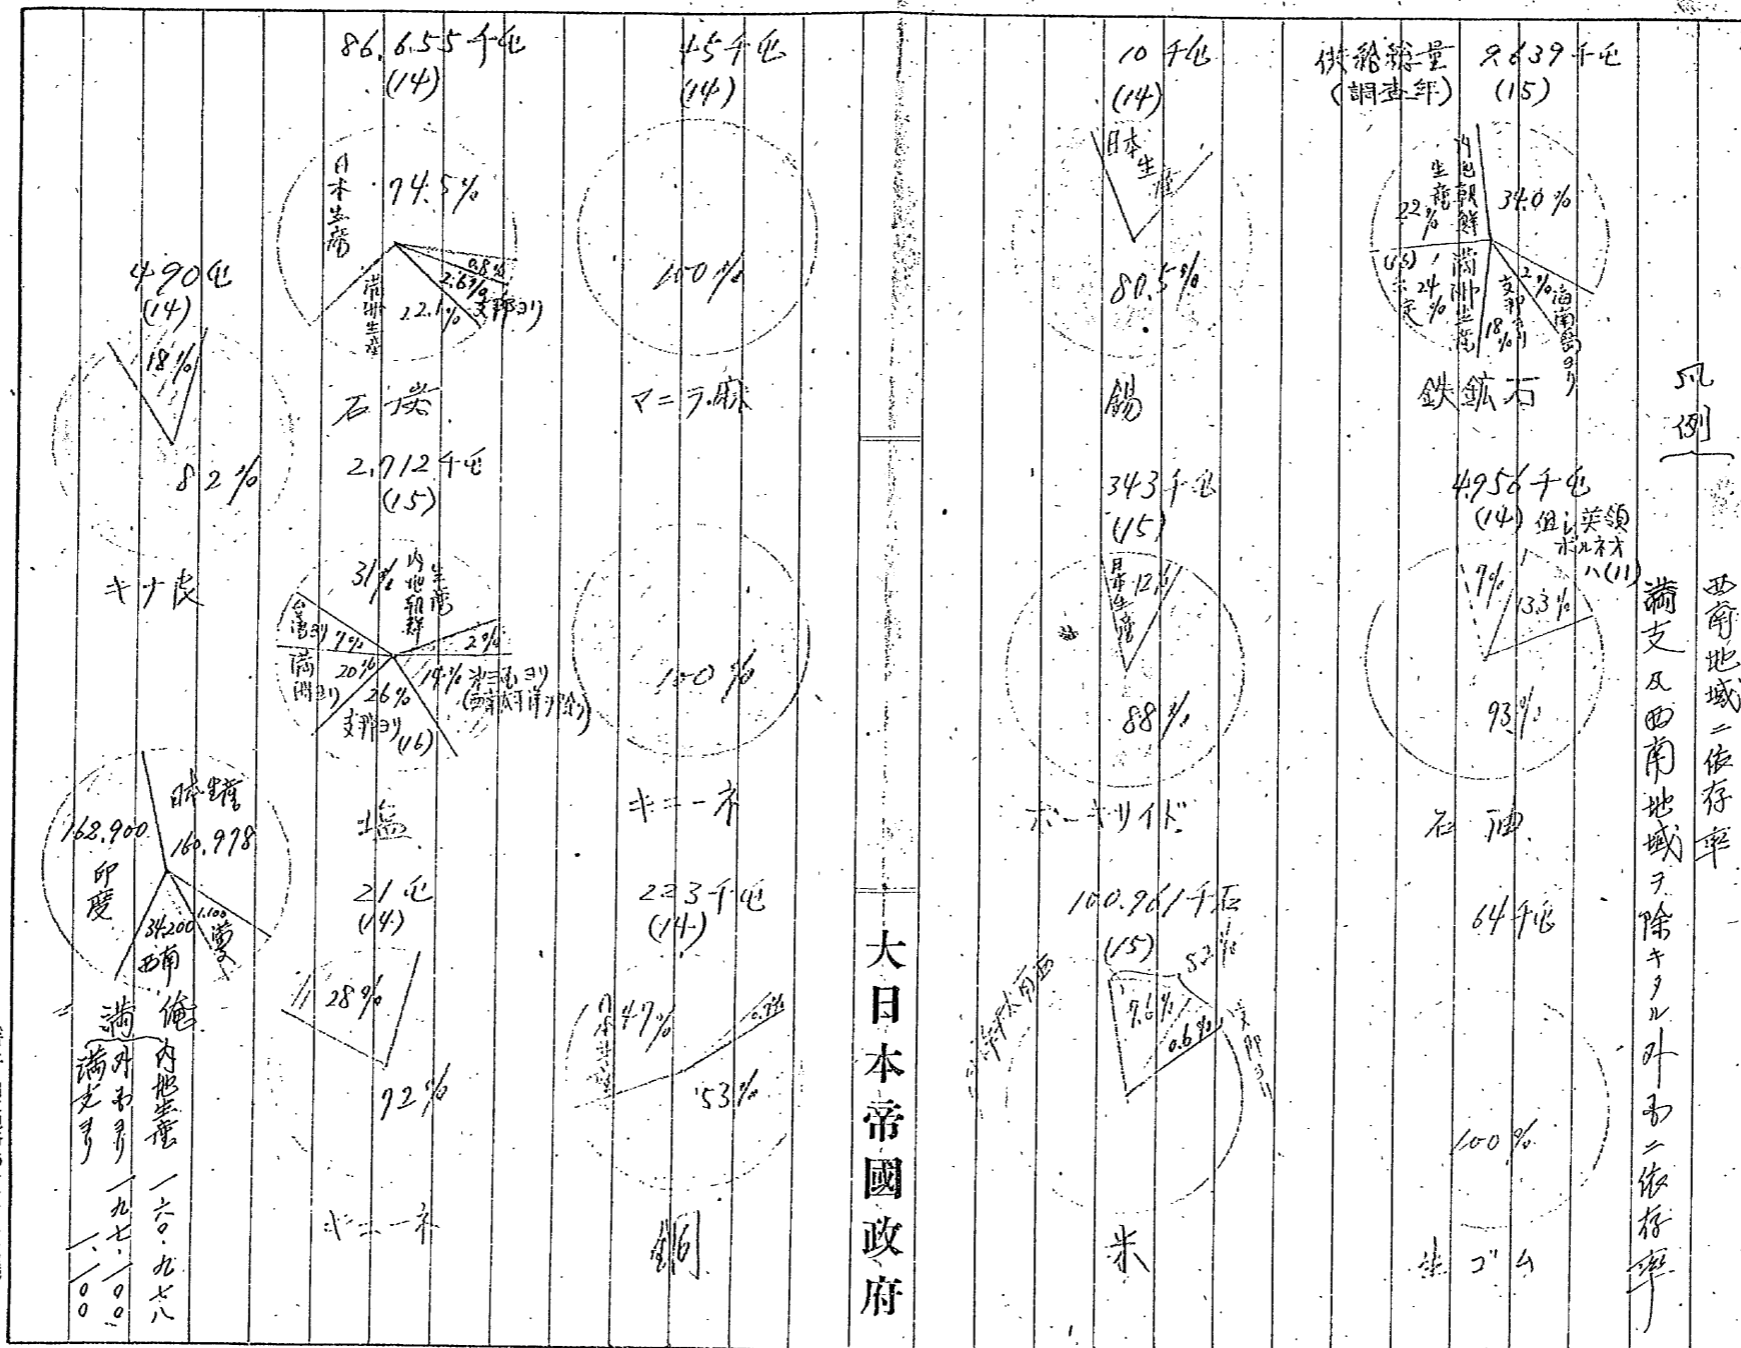 凡例
西南地域ニ依存率
満支及西南地域ヲ除キタル外国ニ依存率
供給総量
(調査年)
9.639千屯
(15)
内地朝鮮
生産
22%
34.0%
2%
海南島ヨリ
支那ヨリ
18%
満洲生産
24%
(15)
鉄鉱石
4.956千屯
(14)
但シ英領
ボルネオ
ハ(11)
7%
13.3%
93%
石油
64千屯
100%
生ゴム
10千屯
(14)
日本生産
80.5%
錫
343千屯
(15)
日本生産
12%
88%
ボーキサイド
100.961千石
(15)
5.2%
7.6%
0.6%
米
大日本帝國政府
15千屯
(14)
100%
マニラ麻
100%
キニーネ
223千屯
(14)
47%
53%
銅
86.655千屯
(14)
日本生産
74.5%
0.8%
2.6%
支那ヨリ
22.1%
満洲生産
石炭
2.712千屯
(15)
31%
内地朝鮮
生産
2%
14%
26%
支那ヨリ(16)
20%
満洲ヨリ
7%
台湾ヨリ
塩
21屯
(14)
28%
72%
キニーネ
490屯
(14)
18%
82%
キナ皮
日本生産
160.978
162.900
印度
34.200
西南
1.100
満支
内地生産 一六〇・九七八
外国ヨリ 一九七・一〇〇
満支ヨリ 一・一〇〇